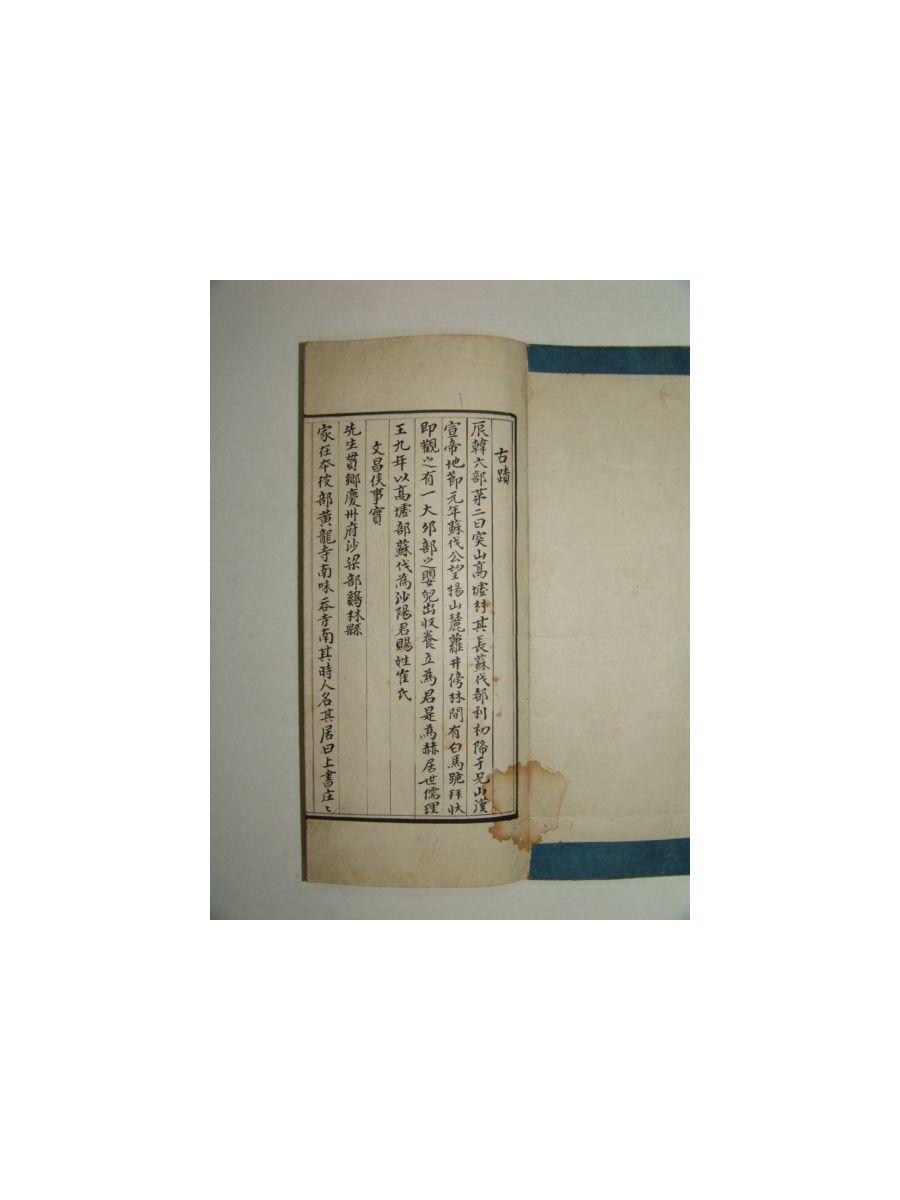 古蹟
辰韓六部苐二曰突山高墟村其長蘇伐都利初降于兄山漢
宣帝地節元年蘇伐公望揚山麓蘿井傍林間有白馬跪拜狀
即觀之有一大卵部之嬰兒出收養立為君是為赫居世儒理
王九年以髙墟部蘇伐為沙陽君賜姓崔氏
文昌侯事實
先生貫鄉慶州府沙梁部鷄林縣
家在夲彼部黃龍寺南味呑寺南其時人名其居曰上書庄〻